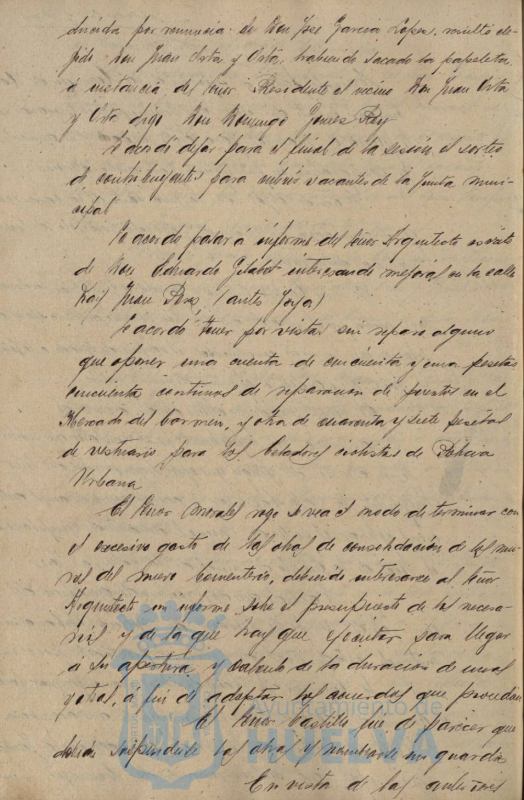 ducida por renuncia de Don José García López, resultó ele-
gido Don Juan Orta y Orta, habiendo sacado la papeleta
á instancia del Señor Presidente el vecino Don Juan Orta
y Orta digo Don Domingo Gomez Rey
Se acordó dejar para el final de la sesión el sorteo
de contribuyentes para cubrir vacantes de la Junta muni-
cipal
Se acordó pasar á informe del Señor Arquitecto escrito
de Don Eduardo Gilabert interesando mejoras en la calle
Juan Perez (antes Joya)
Se acordó tener por vistas sin reparo alguno
que oponer una cuenta de cincuenta y una pesetas
cincuenta centimos de reparación de puertas en el
Mercado del Carmen, y otra de cuarenta y siete pesetas
de vestuario para los Celadores ciclistas de Policia
Urbana
El Señor Morales rogó se vea el modo de terminar con
el excesivo gasto de las obras de consolidación de los mu-
ros del nuevo Cementerio, debiendo interesarse al Señor
Arquitecto un informe sobre el presupuesto de las necesa-
rias y de la que hay que ejecutar para llegar
á su apertura y cálculo de la duración de unas
y otras, á fin de adoptar los acuerdos que procedan
El Señor Castillo fue de parecer que
deben suspenderse las obras y nombrarse un guarda
En vista de las anteriores
Ayuntamiento de
HUELVA